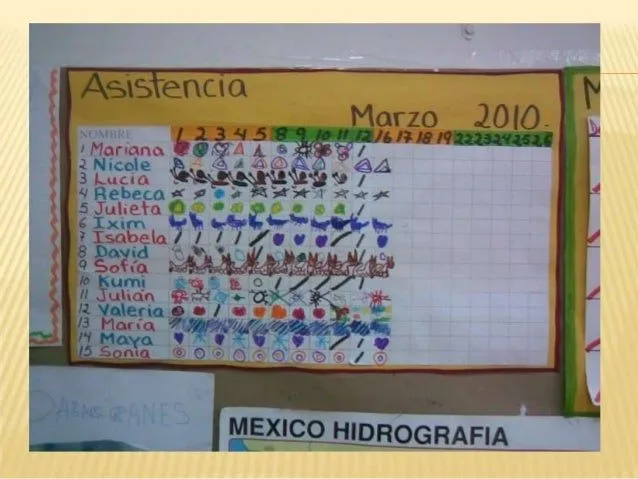 Asistencia
Marzo 2010.
NOMBRE 1 2 3 4 5 8 9 10 11 12 16 17 18 19 22 23 24 25 26
1 Mariana
2 Nicole
3 Lucía
4 Rebeca
5 Julieta
6 Ixim
7 Isabela
8 David
9 Sofía
10 Kumi
11 Julián
12 Valeria
13 María
14 Maya
15 Sonia
M
MEXICO HIDROGRAFIA